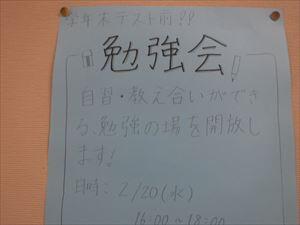 学年末テスト前!?
勉強会
自習・教え合いができ
る、勉強の場を開放し
ます!
日時: 2/20(水)
16:00~18:00